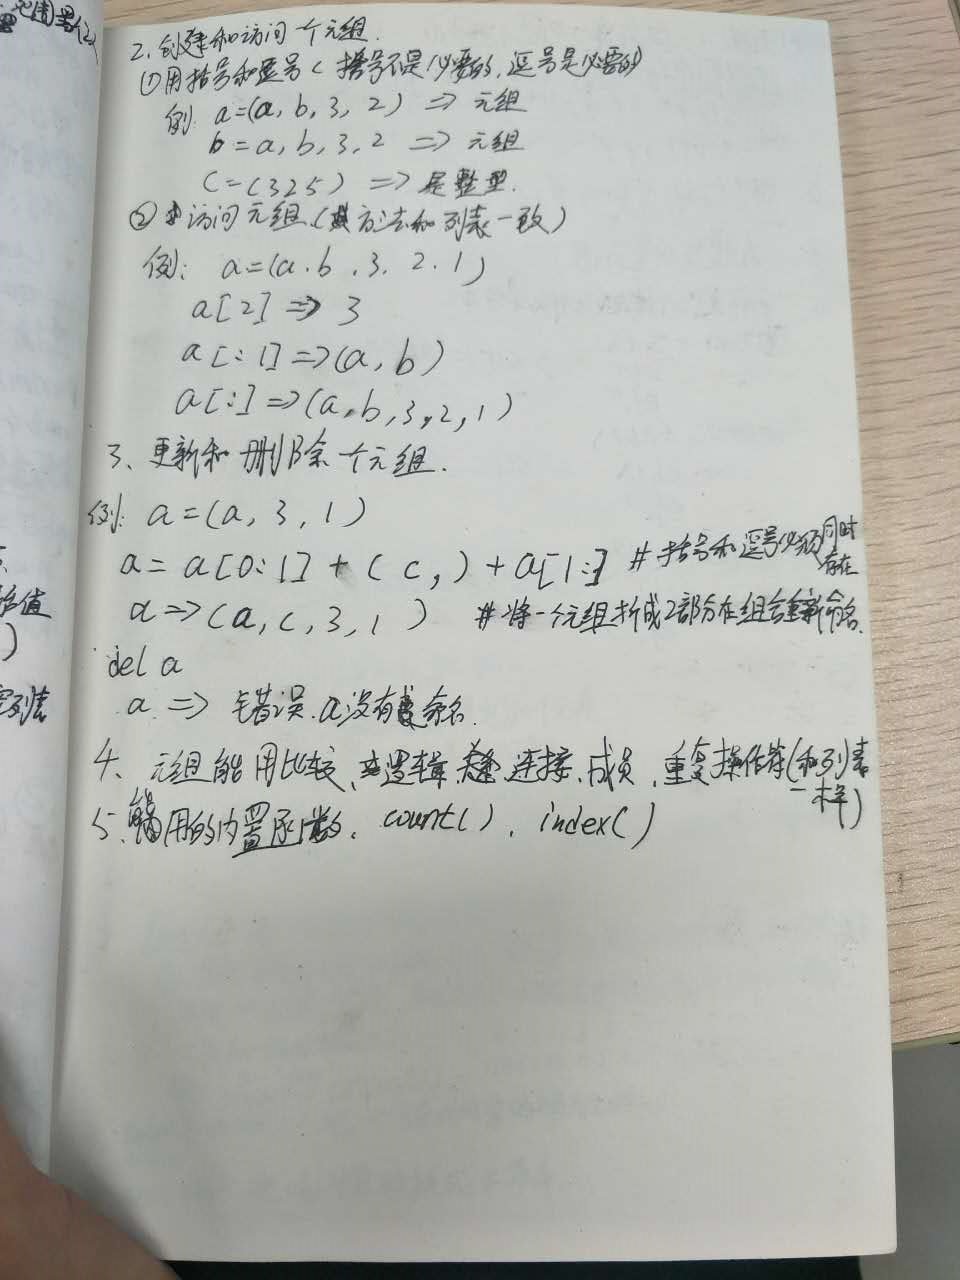 2. 创建和访问一个元组.
①用括号和逗号(括号不是必要的, 逗号是必要的)
例: a=(a, b, 3, 2) => 元组
b = a, b, 3, 2 => 元组
c=(325) => 是整型.
② 访问元组(其方法和列表一致)
例: a=(a.b.3.2.1)
a[2] => 3
a[:1] => (a, b)
a[:] => (a, b, 3, 2, 1)
3、更新和删除一个元组.
例: a=(a, 3, 1)
a = a[0:1] + (c,) + a[1:] #括号和逗号必须同时存在
a => (a, c, 3, 1) #将一个元组拆成2部分在组合重新命名.
del a
a => 错误. a没有被命名.
4、元组能用比较、逻辑、连接、成员、重复操作符(和列表一样)
5、能用的内置函数、count()、index()